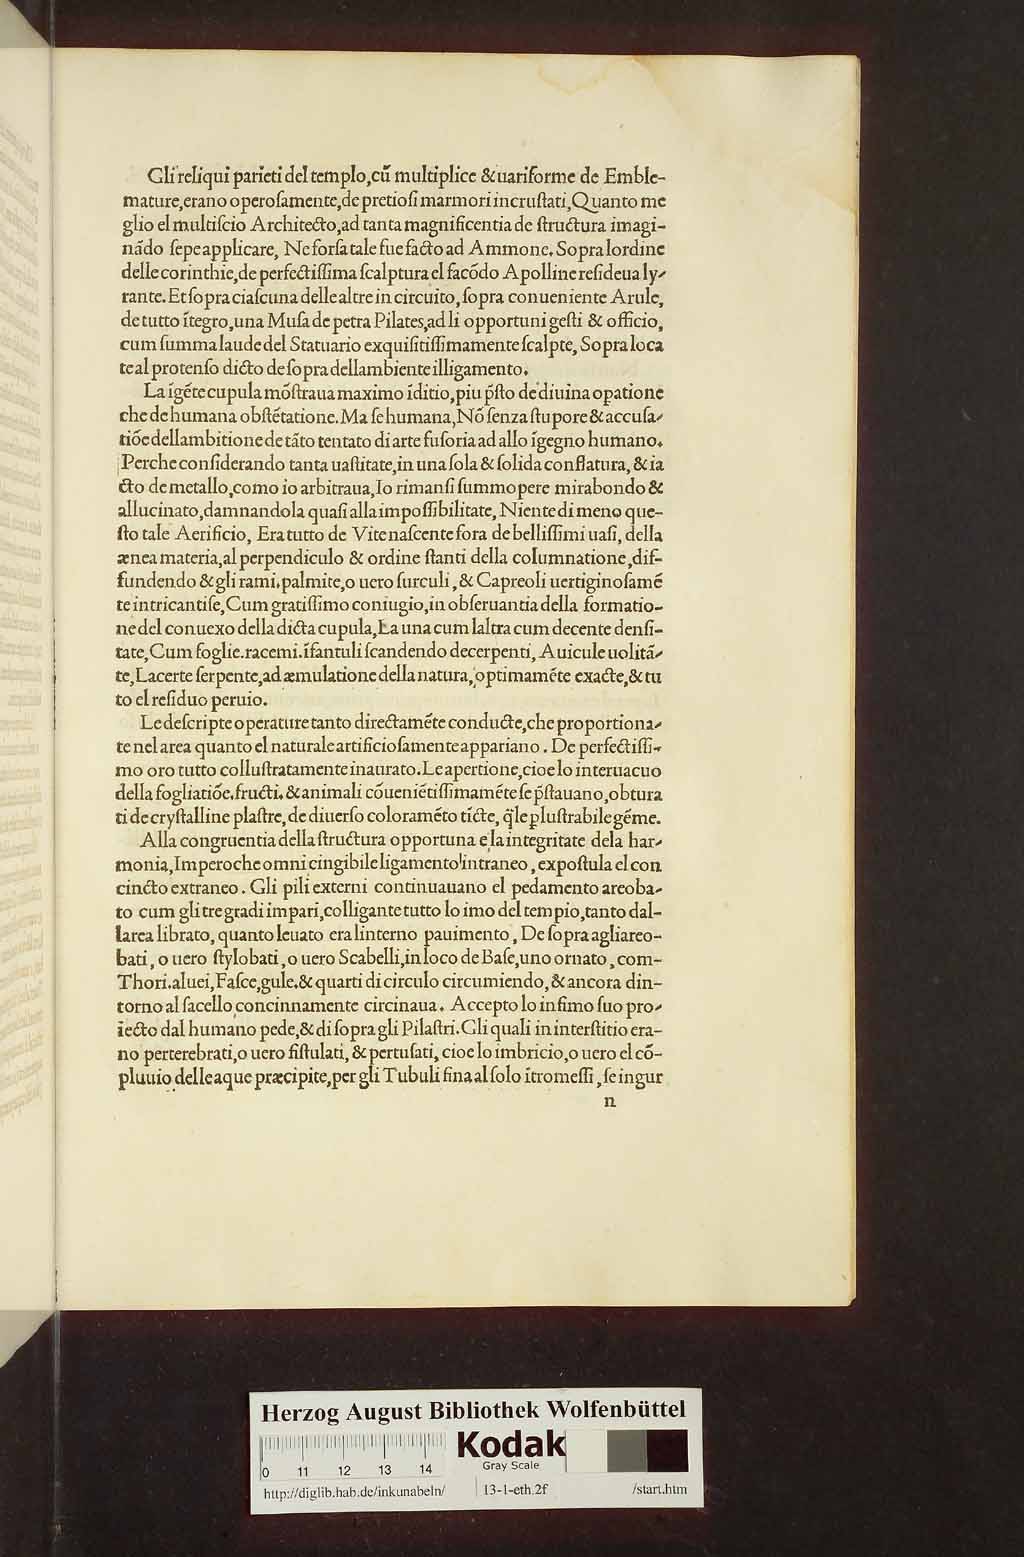 Gli reliqui parieti del templo,cū multiplice & uariforme de Emble-
mature,erano operoſamente,de pretioſi marmori incruſtati,Quanto me
glio el multiſcio Architecto,ad tanta magnificentia de ſtructura imagi-
nādo ſepe applicare, Ne forſa tale fue facto ad Ammone. Sopra lordine
delle corinthie,de perfectiſſima ſcalptura el facōdo Apolline reſideua ly-
rante. Et ſopra ciaſcuna delle altre in circuito, ſopra conueniente Arule,
de tutto ītegro,una Muſa de petra Pilates,ad li opportuni geſti & officio,
cum ſumma laude del Statuario exquiſitiſſimamente ſcalpte, Sopra loca
te al protenſo dicto de ſopra dellambiente illigamento.
La īgēte cupula mōſtraua maximo īditio,piu p̄ſto de diuina opatione
che de humana obſtētatione. Ma ſe humana,Nō ſenza ſtupore & accuſa-
tiōe dellambitione de tāto tentato di arte fuſoria ad allo īgegno humano.
Perche conſiderando tanta uaſtitate,in una ſola & ſolida conflatura, & ia
cto de metallo,como io arbitraua,Io rimanſi ſummopere mirabondo &
allucinato,damnandola quaſi alla impoſſibilitate, Niente di meno que-
ſto tale Aerificio, Era tutto de Vite naſcente fora de belliſſimi uaſi, della
ænea materia,al perpendiculo & ordine ſtanti della columnatione,dif-
fundendo & gli rami,palmite,o uero ſurculi, & Capreoli uertiginoſamē
te intricantiſe,Cum gratiſſimo coniugio,in obſeruantia della formatio-
ne del conuexo della dicta cupula,La una cum laltra cum decente denſi-
tate,Cum foglie.racemi.īfantuli ſcandendo decerpenti, Auicule uolitā-
te,Lacerte ſerpente,ad æmulatione della natura,optimamēte exacte,& tu
to el reſiduo peruio.
Le deſcripte operature tanto directamēte conducte,che proportiona-
te nel area quanto el naturale artificioſamente appariano. De perfectiſſi-
mo oro tutto colluſtratamente inaurato.Le apertione,cioe lo interuacuo
della fogliatiōe.fructi.& animali cōueniētiſſimamēte ſe p̄ſtauano,obtura
ti de cryſtalline plaſtre,de diuerſo coloramēto tīcte, q̄le ꝑluſtrabile gēme.
Alla congruentia della ſtructura opportuna e,la integritate dela har-
monia,Imperoche omni cingibile ligamento intraneo, expoſtula el con
cincto extraneo. Gli pili externi continuauano el pedamento areoba-
to cum gli tre gradi impari,colligante tutto lo imo del tempio,tanto dal-
larea librato, quanto leuato era linterno pauimento, De ſopra agli areo-
bati, o uero ſtylobati, o uero Scabelli,in loco de Baſe,uno ornato, com-
Thori.aluei,Faſce,gule.& quarti di circulo circumiendo,& ancora din-
torno al ſacello concinnamente circinaua. Accepto lo infimo ſuo pro-
iecto dal humano pede,& di ſopra gli Pilaſtri.Gli quali in interſtitio era-
no perterebrati,o uero fiſtulati, & pertuſati, cioe lo imbricio,o uero el cō-
pluuio delle aque præcipite,per gli Tubuli fina al ſolo ītromeſſi, ſe ingur
n
Herzog August Bibliothek Wolfenbüttel
Kodak
Gray Scale
0 11 12 13 14
http://diglib.hab.de/inkunabeln/ 13-1-eth.2f /start.htm